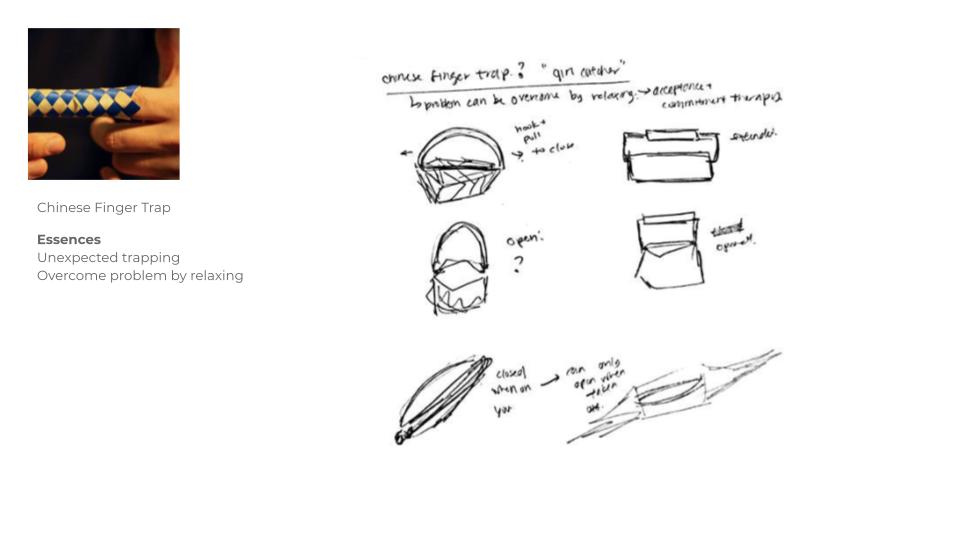 Chinese Finger Trap
Essences
Unexpected trapping
Overcome problem by relaxing
chinese finger trap? "girl catcher"
problem can be overcome by relaxing. → acceptance +
commitment therapy?
hook +
pull
→ to close
open?
extended.
opened.
closed
when on
you
→ can only
open when
taken
off.